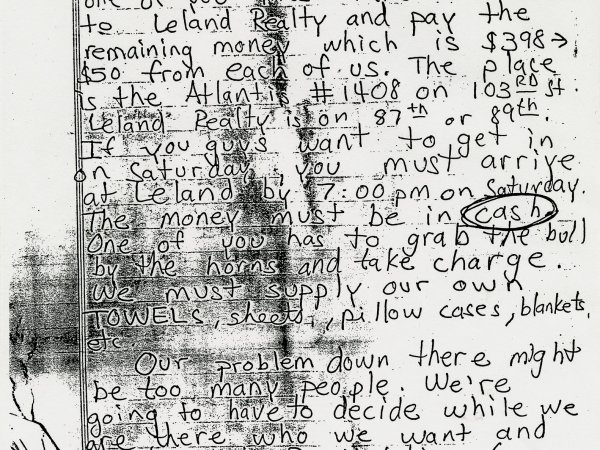 one of you
to Leland Realty and pay the
remaining money which is $398→
$50 from each of us. The place
is the Atlantis #1408 on 103RD St.
Leland Realty is on 87th or 89th.
If you guys want to get in
on Saturday, you must arrive
at Leland by 7:00 pm on Saturday.
The money must be in cash.
One of you has to grab the bull
by the horns and take charge.
We must supply our own
TOWELS, sheets, pillow cases, blankets,
etc.
Our problem down there might
be too many people. We're
going to have to decide while we
are there who we want and